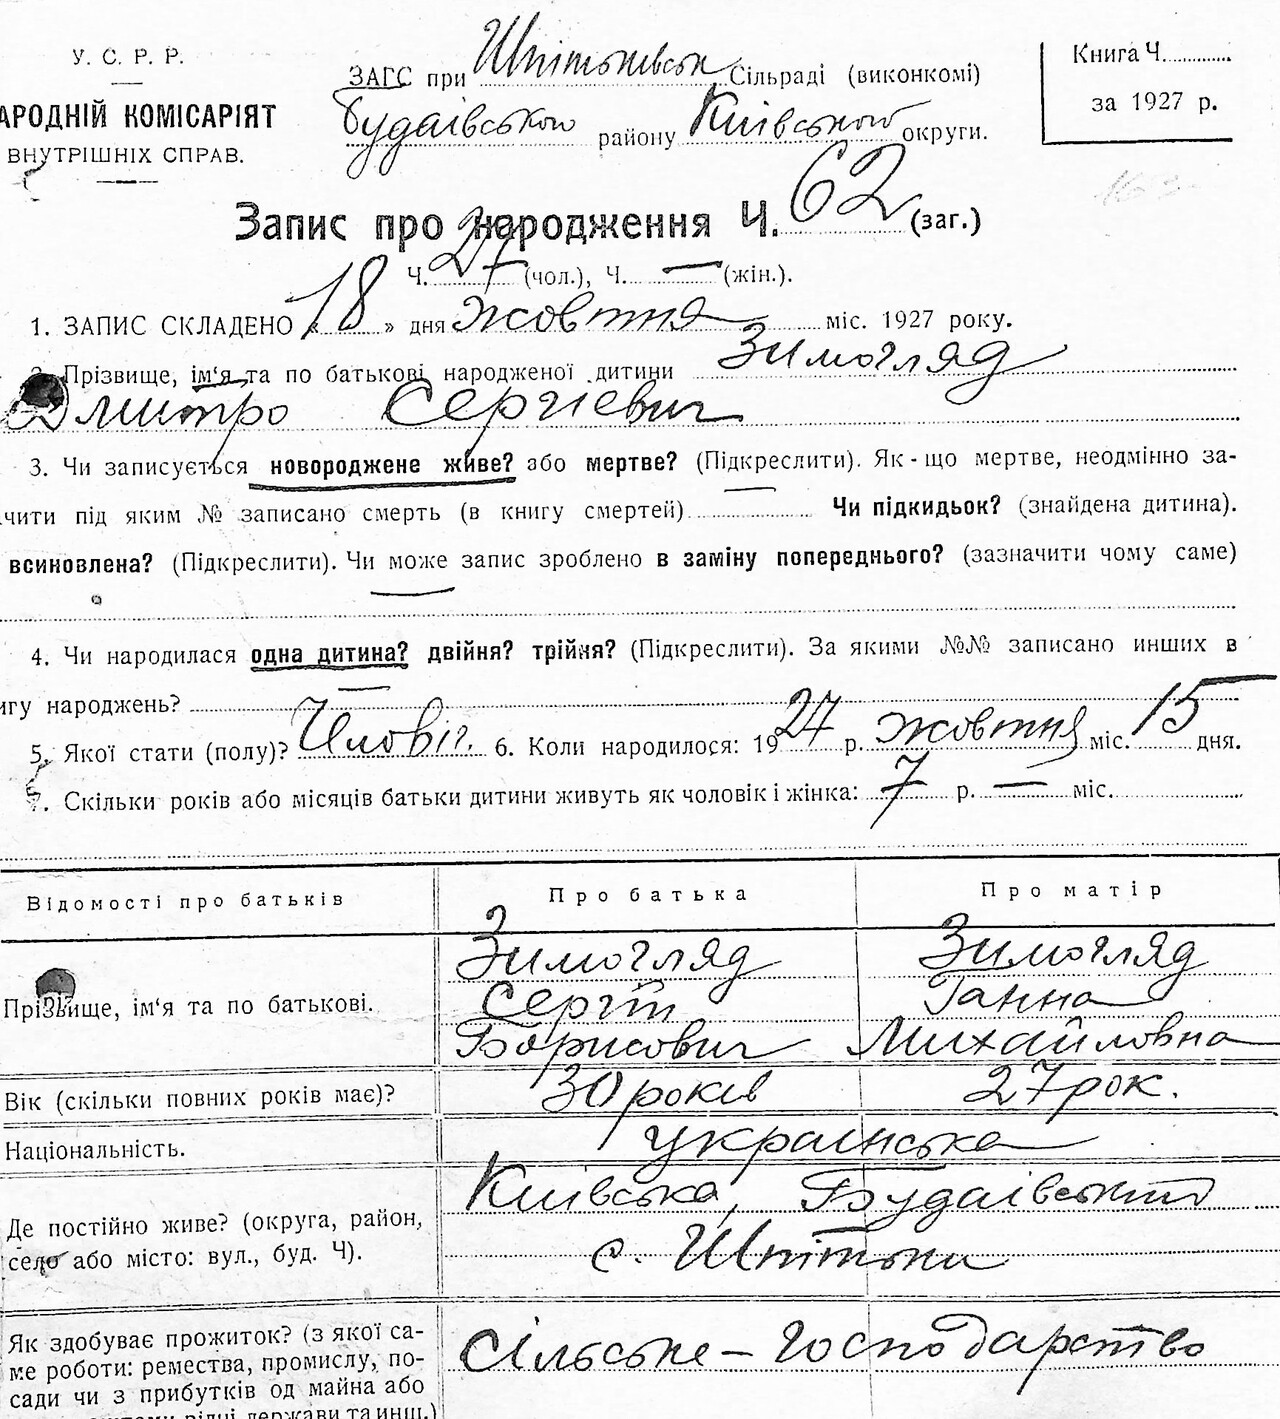 У. С. Р. Р.
АРОДНІЙ КОМІСАРІЯТ
ВНУТРІШНІХ СПРАВ.
ЗАГС при Шпітьківськ Сільраді (виконкомі)
Будаівського району Киівського округи.
Книга Ч.
за 1927 р.
Запис про народження Ч. 62 (заг.)
Ч. 27 (чол.), Ч. — (жін.).
1. ЗАПИС СКЛАДЕНО « 18 » дня жовтня міс. 1927 року.
2. Прізвище, ім'я та по батькові народженої дитини Зимогляд
Дмитро Сергієвич
3. Чи записується новороджене живе? або мертве? (Підкреслити). Як-що мертве, неодмінно за-
чити під яким № записано смерть (в книгу смертей) — Чи підкидьок? (знайдена дитина).
всиновлена? (Підкреслити). Чи може запис зроблено в заміну попереднього? (зазначити чому саме)
4. Чи народилася одна дитина? двійня? трійня? (Підкреслити). За якими №№ записано инших в
игу народжень? —
5. Якої стати (полу)? Чловіч. 6. Коли народилося: 1927 р. жовтня міс. 15 дня.
7. Скільки років або місяців батьки дитини живуть як чоловік і жінка: 7 р. — міс.
Відомості про батьків Про батька Про матір
Прізвище, ім'я та по батькові.
Зимогляд Зимогляд
Сергій Ганна
Борисович Михайловна
Вік (скільки повних років має)? 30 років 27 рок.
Національність. українська
Де постійно живе? (округа, район,
село або місто: вул., буд. Ч).
Киівська, Будаівський
с. Шпітьки
Як здобуває прожиток? (з якої са-
ме роботи: ремества, промислу, по-
сади чи з прибутків од майна або
рідні, держави та инш.)
Сільське – господарство